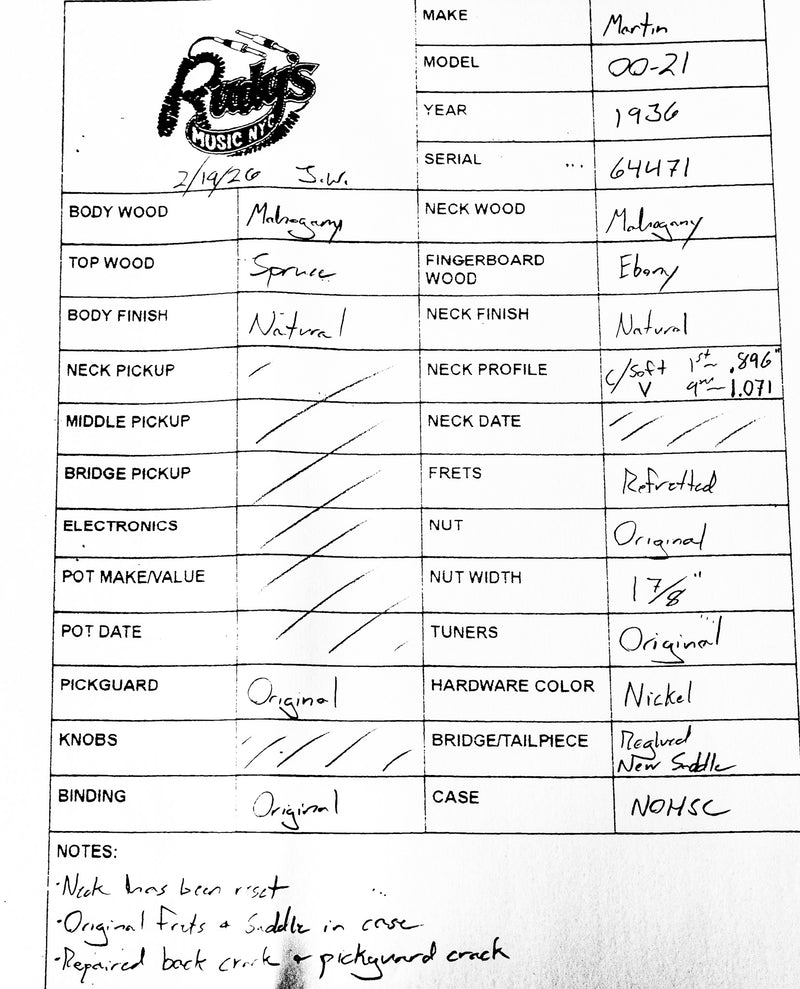 Rudy's
MUSIC NYC
2/19/26 J.W.
MAKE Martin
MODEL 00-21
YEAR 1936
SERIAL 64471
BODY WOOD Mahogany NECK WOOD Mahogany
TOP WOOD Spruce FINGERBOARD WOOD Ebony
BODY FINISH Natural NECK FINISH Natural
NECK PICKUP NECK PROFILE C/Soft V 1st ~ .896" 9th ~ 1.071
MIDDLE PICKUP NECK DATE
BRIDGE PICKUP FRETS Refretted
ELECTRONICS NUT Original
POT MAKE/VALUE NUT WIDTH 1 7/8"
POT DATE TUNERS Original
PICKGUARD Original HARDWARE COLOR Nickel
KNOBS BRIDGE/TAILPIECE Reglued New Saddle
BINDING Original CASE NOHSC
NOTES:
·Neck has been reset
·Original Frets + Saddle in case
·Repaired back crack + pickguard crack